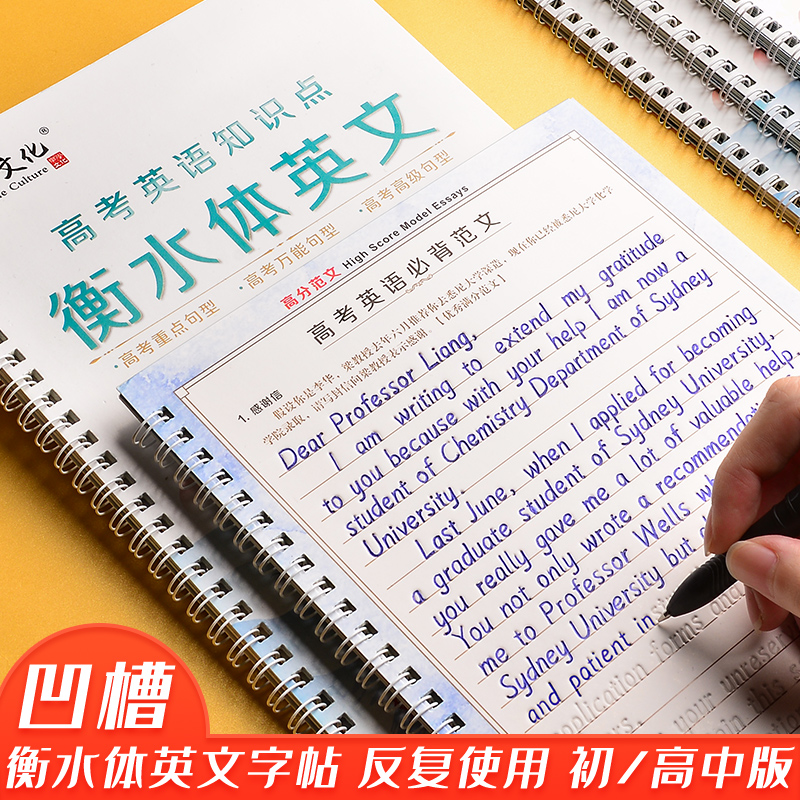 文化®
e Culture
高考英语知识点
衡水体英文
·高考重点句型 ·高考万能句型 ·高考高级句型
高分范文 High Score Model Essays
高考英语必背范文
1. 感谢信
假设你是李华，梁教授去年六月推荐你去悉尼大学深造，现在你已经被悉尼大学化学
学院录取，请写封信向梁教授表示感谢。【优秀满分范文】
Dear Professor Liang,
I am writing to extend my gratitude
to you because with your help I am now a
student of Chemistry Department of Sydney
University.
Last June, when I applied for becoming
a graduate student of Sydney University,
you really gave me a lot of valuable help.
You not only wrote a recommendat
me to Professor Wells wh
Sydney University but
and patient in
application forms an
your unreser
in this
凹槽
衡水体英文字帖 反复使用 初/高中版